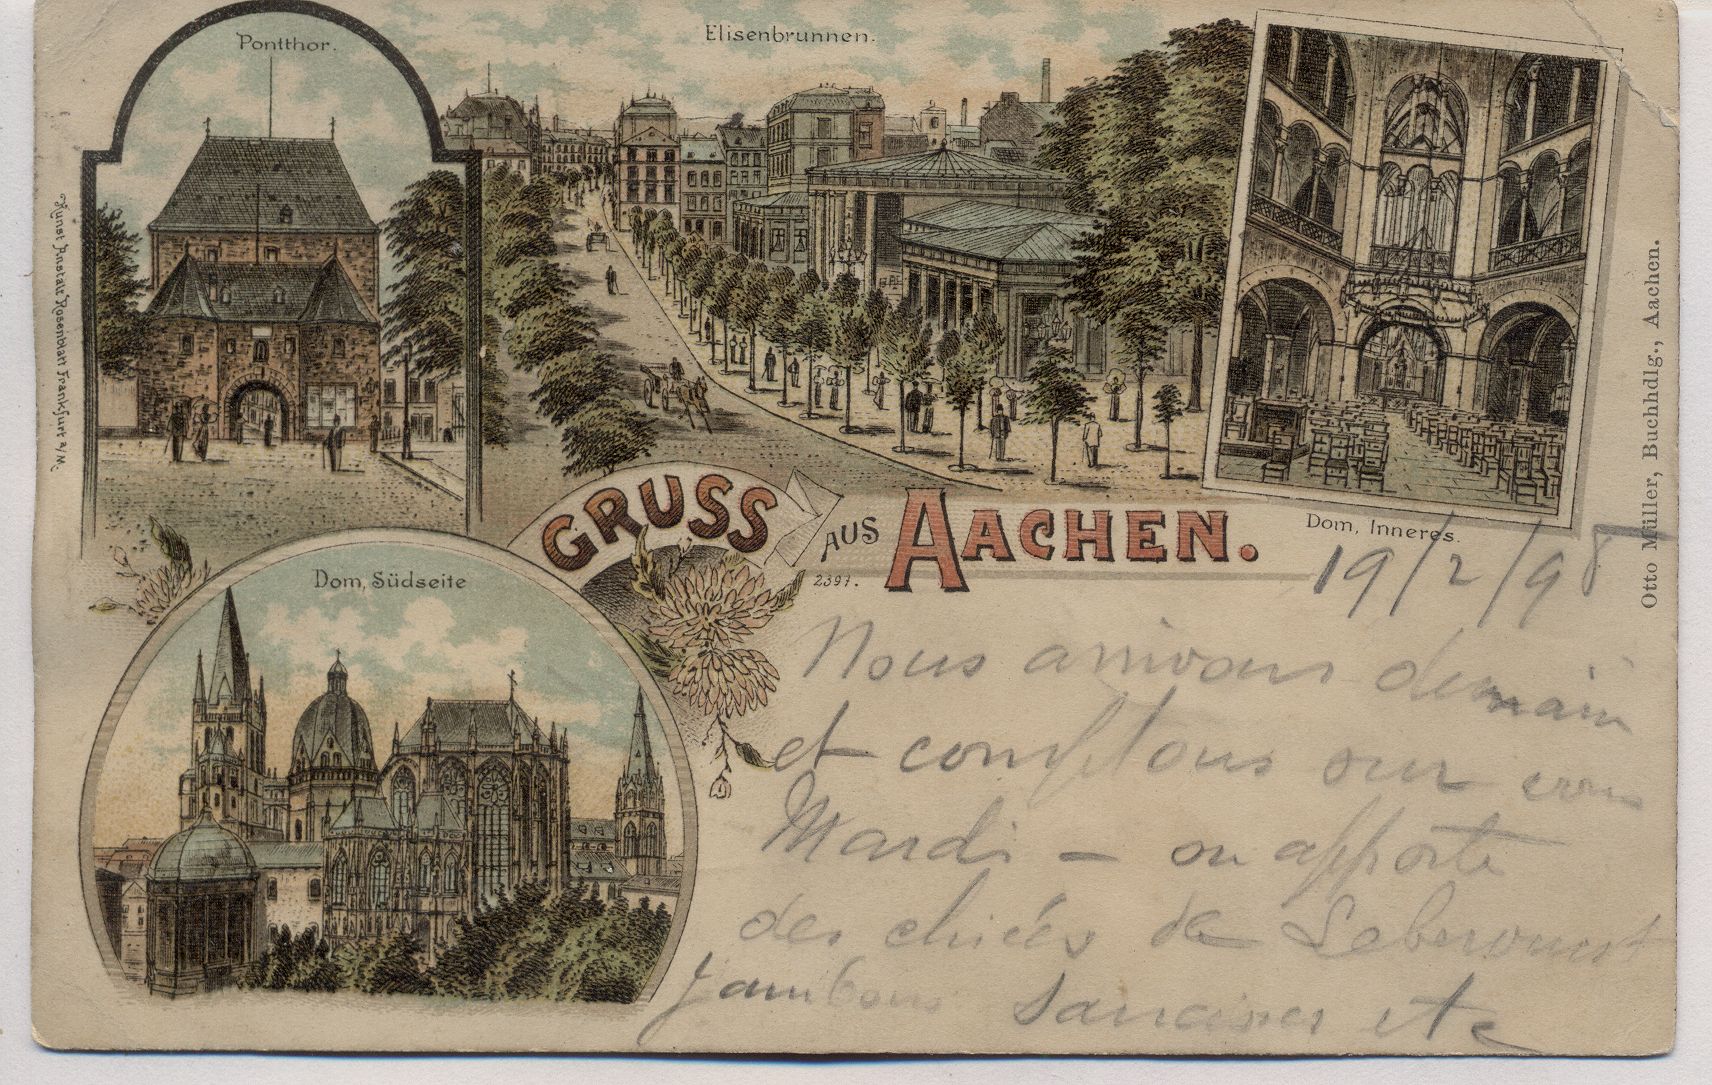 Pontthor.
Elisenbrunnen.
Kunst Anstalt Rosenblatt Frankfurt a/M.
Otto Müller, Buchhdlg., Aachen.
Dom, Inneres.
GRUSS AUS AACHEN.
2397.
Dom, Südseite
19/2/98
Nous arrivons demain
et comptons sur vous
Mardi – on apporte
des de
Jambons saucisses etc